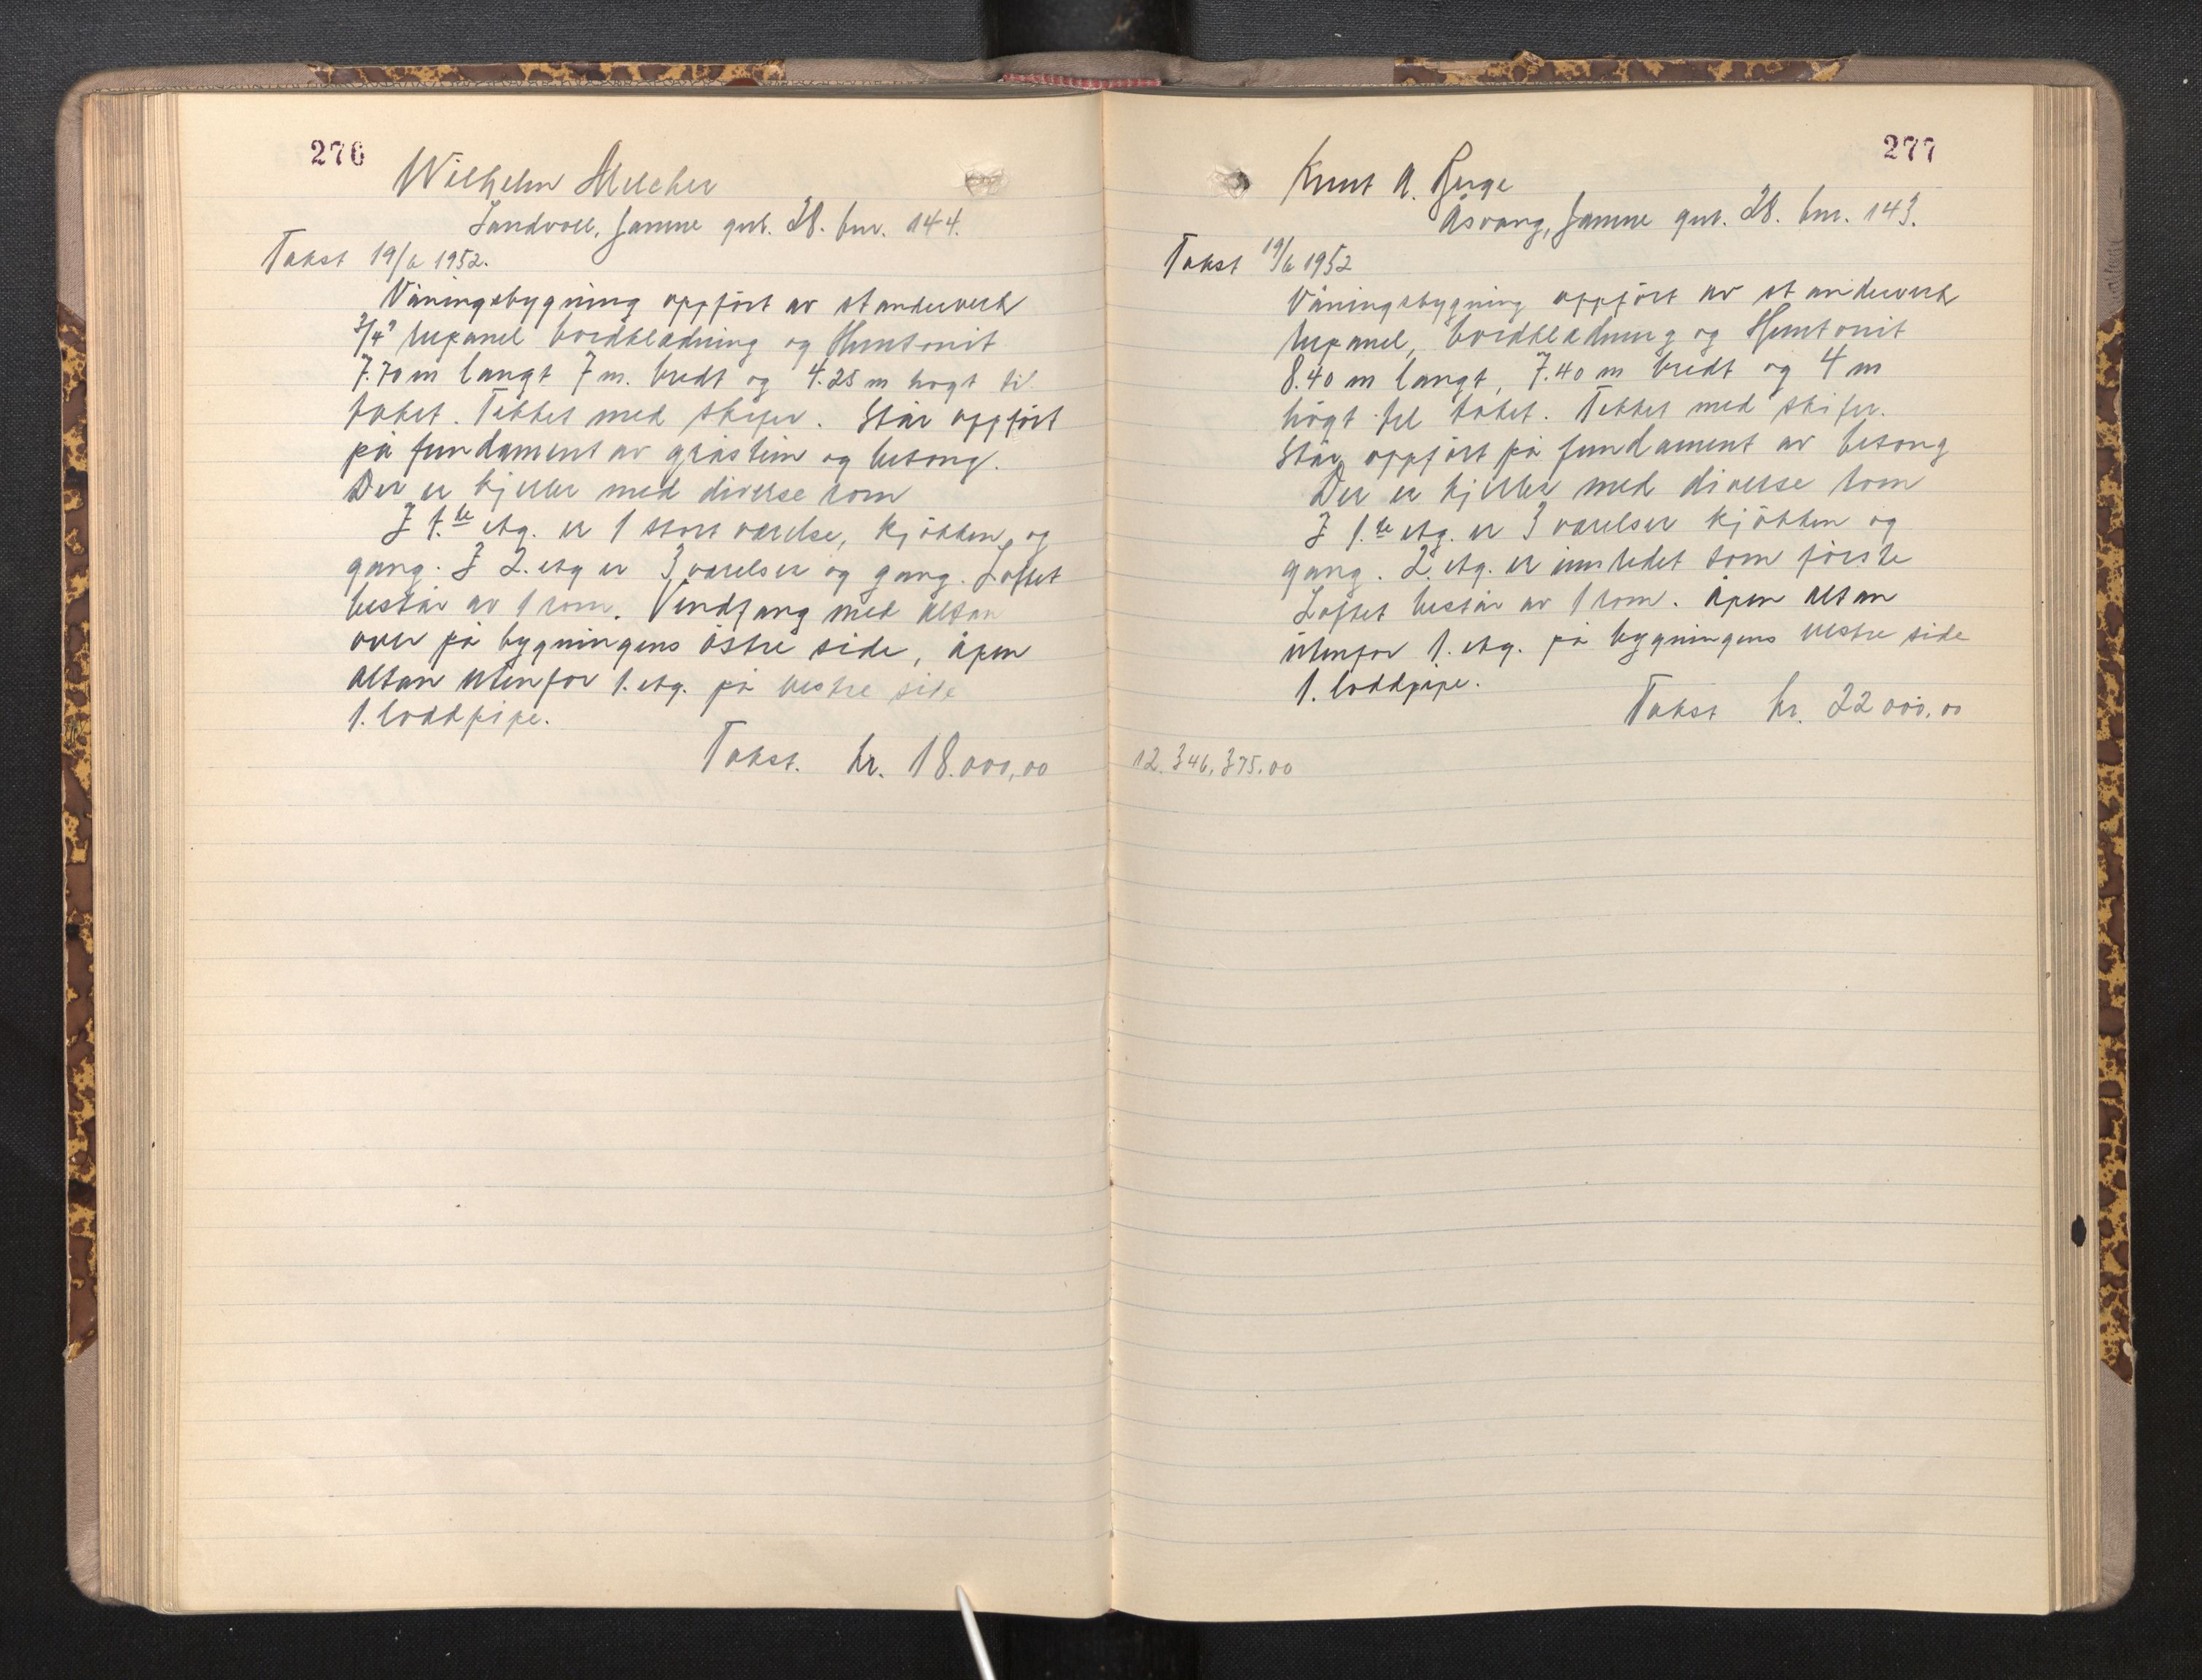 276
Wilhelm Melcher
Sandvoll, Samne gnr. 28. bnr. 144.
Takst 19/6 1952.
Våningsbygning oppført av standerverk
3/4" rupanel bordkledning og Huntonit
7.70 m langt 7 m. bredt og 4.25 m høgt til
taket. Tekket med skifer. Står oppført
på fundament av gråstein og betong.
Der er kjeller med diverse rom
I 1.ste etg. er 1 stort værelse, kjøkken og
gang. I 2. etg er 3 værelser og gang. Loftet
består av 1 rom. Vindfang med altan
over på bygningens østre side, åpen
altan utenfor 1. etg. på vestre side
1. loddpipe.
Takst. kr. 18.000,00
277
Knut A. Berge
Åsvang, Samne gnr. 28. bnr. 143.
Takst 19/6 1952
Våningsbygning oppført av standerverk
rupanel, bordkledning og Huntonit
8.40 m langt, 7.40 m bredt og 4 m
høgt til taket. Tekket med skifer.
Står oppført på fundament av betong
Der er kjeller med diverse rom
I 1.ste etg. er 3 værelser kjøkken og
gang. 2. etg. er innredet som første
Loftet består av 1 rom. Åpen altan
utenfor 1. etg. på bygningens vestre side
1. loddpipe.
Takst kr. 22000,00
12.346,375.00